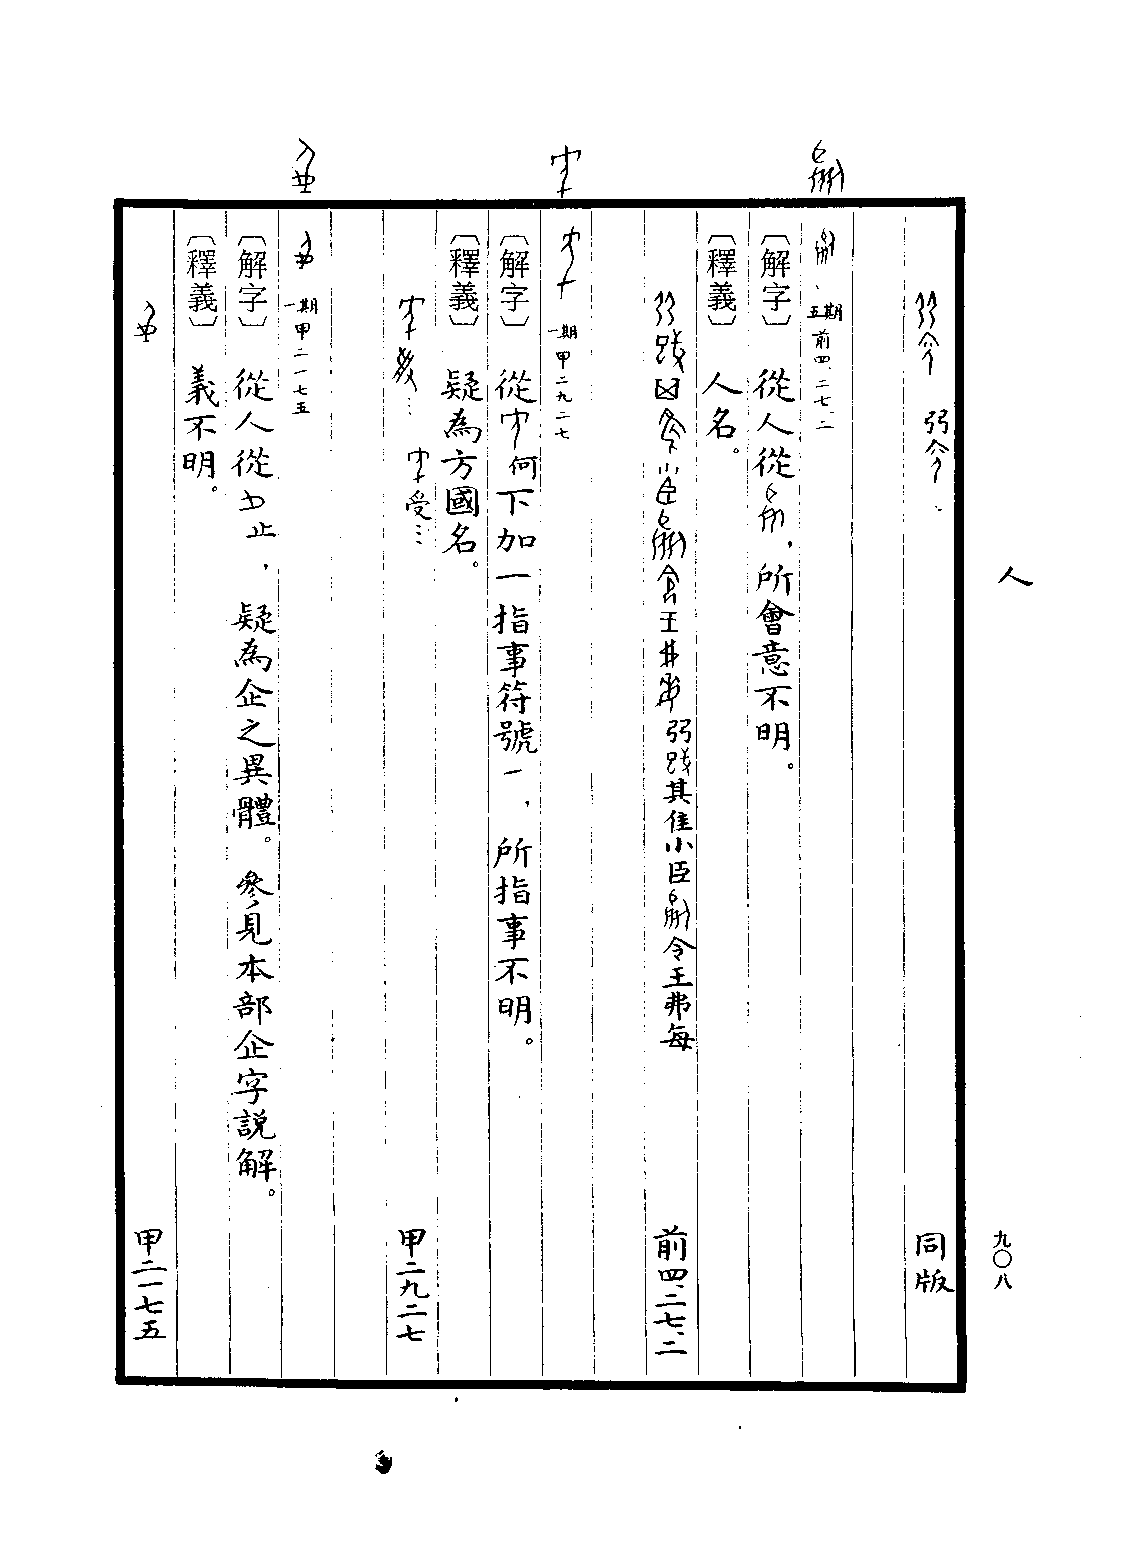 人
九〇八
弜令
同版
五期前四、二七、二
〔解字〕從人從，所會意不明。
〔釋義〕人名。
弜踐其隹小臣令王弗每
前四、二七、二
一期甲二九二七
〔解字〕從何下加一指事符號一，所指事不明。
〔釋義〕疑為方國名。
受…
甲二九二七
一期甲二一七五
〔解字〕從人從止，疑為企之異體。參見本部企字說解。
〔釋義〕義不明。
甲二一七五